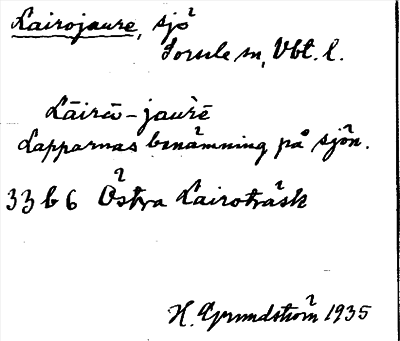 Lairojaure, sjö
Sorsele sn, Vbt. l.
Lāirū-jaurē
Lapparnas benämning på sjön.
33 b 6 Östra Lairoträsk
H. Grundström 1935